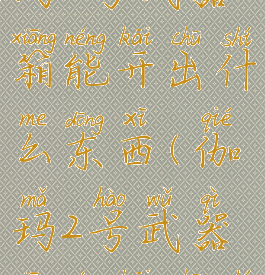 xiāng néng kāi chū shí
箱能开出什
me dōng xī qié
么东西(伽
mǎ hào wǔ qì
玛2号武器